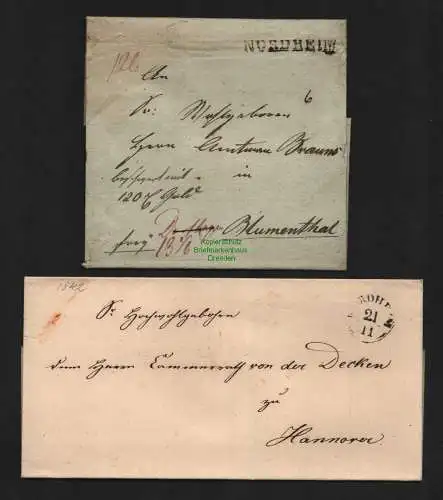 NORDHEIM
An
6
Sr. Wohlgeboren
Herrn Amtmann Brauns
in
120 Gold
Blumenthal
frey
Kopierschutz
Briefmarkenhaus
Dresden
1842
21
11
Sr Hochwohlgeboren
dem Herrn Cammerrath von der Decken
zu
Hannover